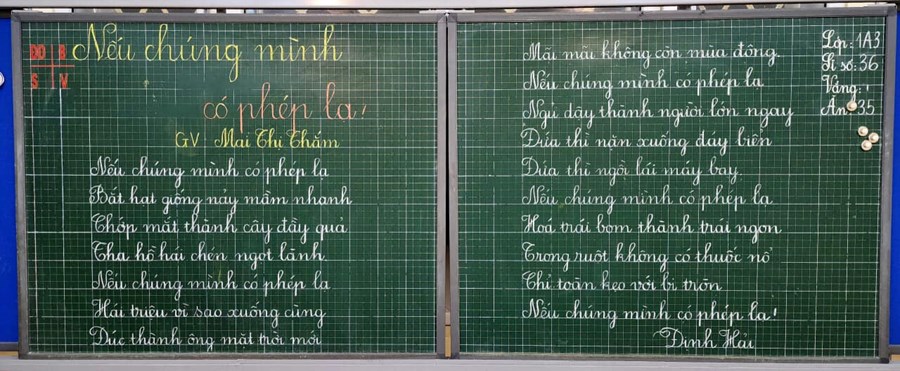 ĐĐ B
S V
Nếu chúng mình
có phép lạ!
GV Mai Thị Thắm
Nếu chúng mình có phép lạ
Bắt hạt giống nảy mầm nhanh
Chớp mắt thành cây đầy quả
Tha hồ hái chén ngọt lành.
Nếu chúng mình có phép lạ
Hái triệu vì sao xuống cùng
Đúc thành ông mặt trời mới
Mãi mãi không còn mùa đông.
Nếu chúng mình có phép lạ
Ngủ dậy thành người lớn ngay
Đứa thì lặn xuống đáy biển
Đứa thì ngồi lái máy bay.
Nếu chúng mình có phép lạ
Hoá trái bom thành trái ngon
Trong ruột không có thuốc nổ
Chỉ toàn kẹo với bi tròn
Nếu chúng mình có phép lạ!
Định Hải
Lớp: 1A3
Sĩ số: 36
Vắng: 1
Ăn: 35